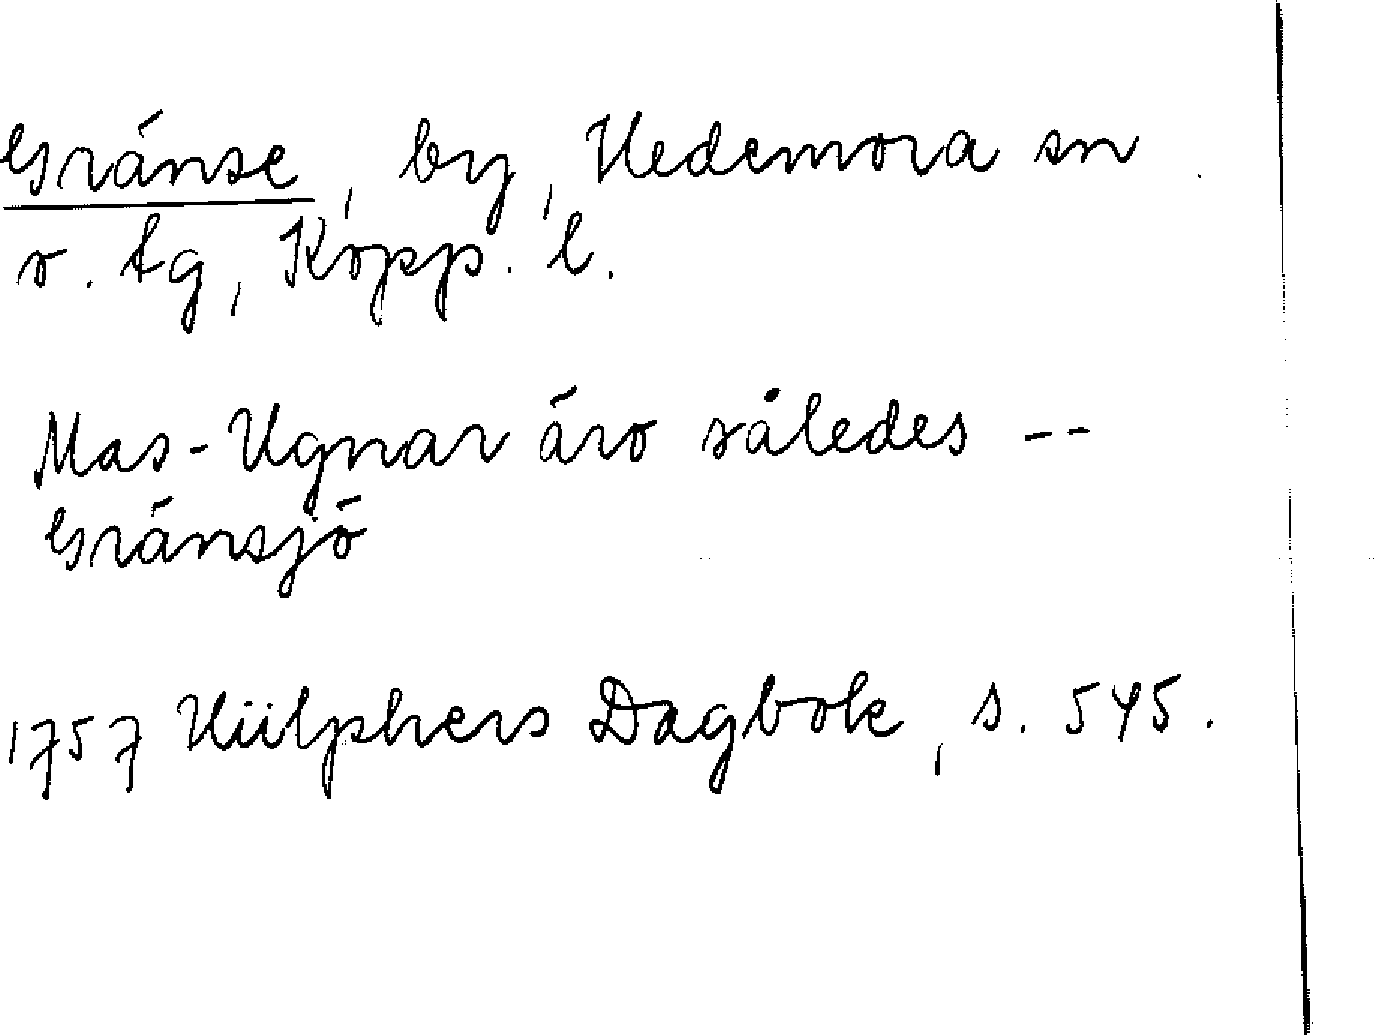 Gränse, by, Hedemora sn
o. tg, Kopp. l.
Mas-Ugnar äro således --
Gränsjö
1757 Hülphers Dagbok, s. 545.